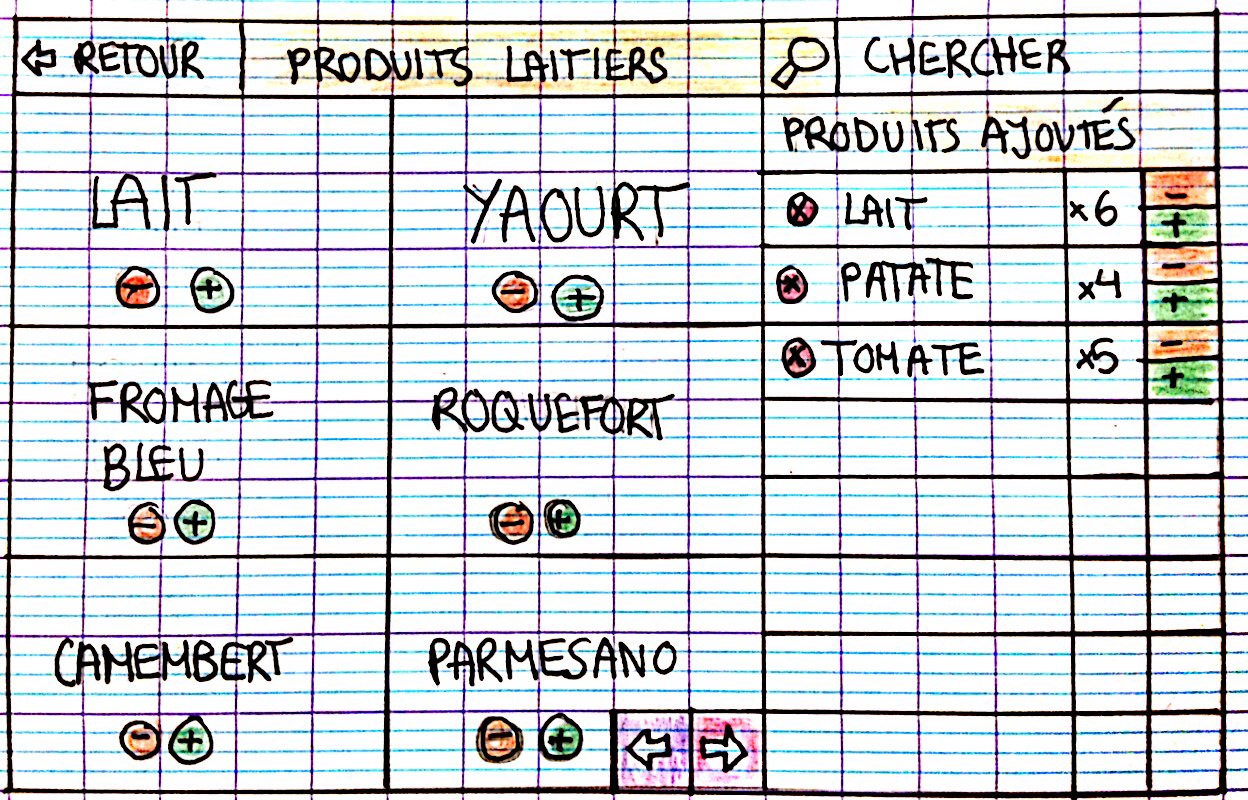 RETOUR
PRODUITS LAITIERS
CHERCHER
LAIT
- +
YAOURT
- +
FROMAGE
BLEU
- +
ROQUEFORT
- +
CAMEMBERT
- +
PARMESANO
- +
PRODUITS AJOUTÉS
x LAIT x6 - +
x PATATE x4 - +
x TOMATE x5 - +